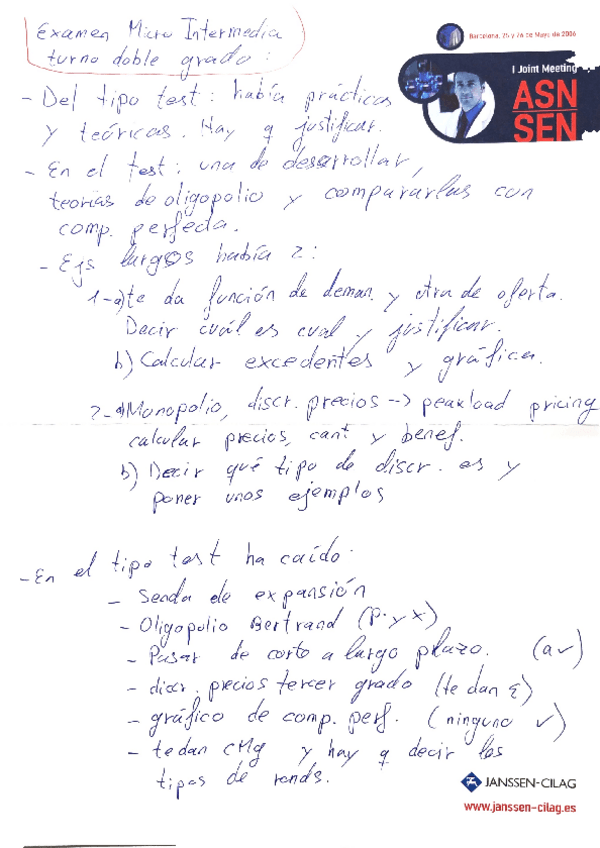 Examen Micro Intermedia
turno doble grado:
Barcelona, 25 y 26 de Mayo de 2006
I Joint Meeting
ASN
SEN
- Del tipo test: había prácticas
y teóricas. Hay q justificar.
- En el test: una de desarrollar,
teorías de oligopolio y compararlas con
comp. perfecta.
- Ejs largos había 2:
1-a) te da función de deman. y otra de oferta.
Decir cuál es cual y justificar.
b) Calcular excedentes y gráfica.
2-a) Monopolio, discr. precios --> peakload pricing
calcular precios, cant y benef.
b) Decir qué tipo de discr. es y
poner unos ejemplos
- En el tipo test ha caído:
- Senda de expansión
- Oligopolio Bertrand (P. y X)
- Pasar de corto a largo plazo. (a✓)
- discr. precios tercer grado (te dan ξ)
- gráfico de comp. perf. (ninguno ✓)
- te dan CMg y hay q decir los
tipos de rends.
JANSSEN-CILAG
www.janssen-cilag.es